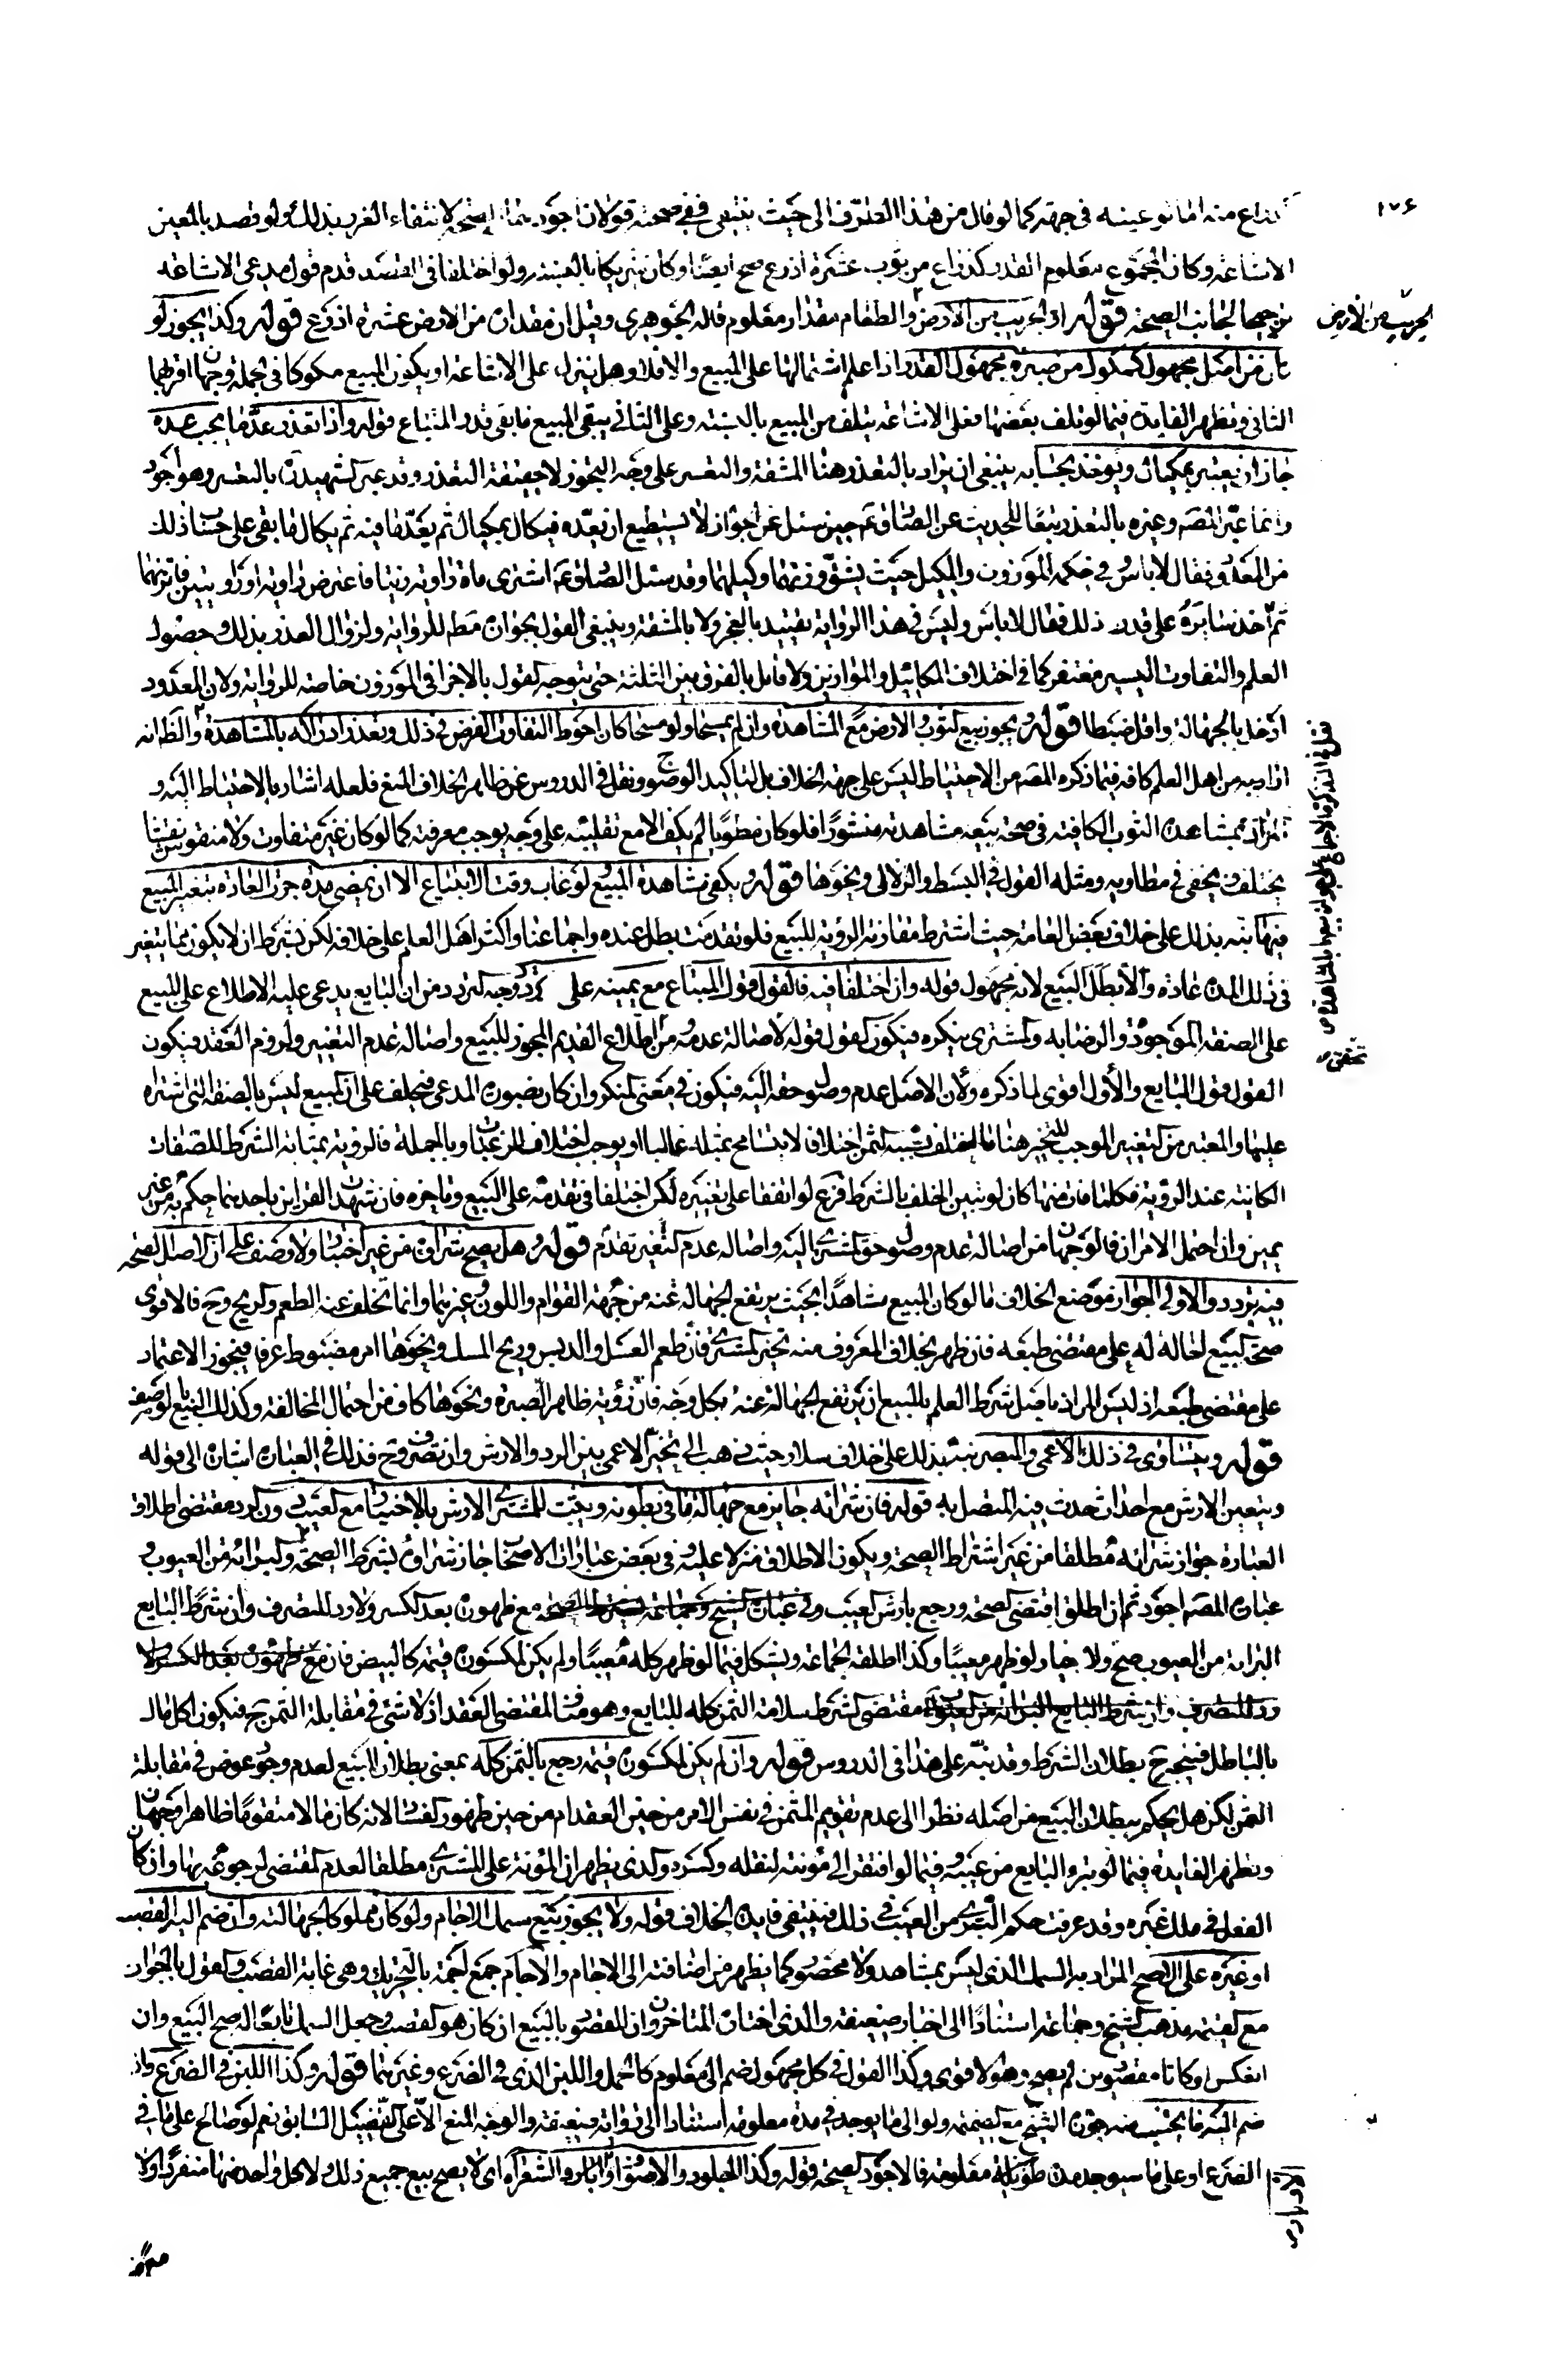 ١٧٦
كذراع منه اما لو عينه في جهته كما لو قال من هذا الطرف الى حيث ينتهي ففي صحته قولان اجودهما الصحة لانتفاء الغرر بذلك ولو قصد بالمعين
الاشاعة وكان المجموع معلوم القدر كذراع من ثوب عشرة اذرع صح ايضا وكان شريكا بالنسبة ولو اختلفا في القصد قدم قول مدعي الاشاعة
ترجيحا لجانب الصحة قوله او الجريب من الارض والطعام مقدار معلوم قاله الجوهري وقيل ان مقداره من الارض عشرة اذرع قوله وكذا يجوز لو
الجريب من الارض
كان من اصل مجهول كمكوك من صبرة مجهول القدر اذا علم اشتمالها على المبيع والا فلا وهل ينزل على الاشاعة او يكون المبيع مكوكا في الجملة وجهان اقربهما
الثاني وتظهر الفايدة فيما لو تلف بعضها فعلى الاشاعة يتلف من المبيع بالنسبة وعلى الثاني يبقى المبيع ما بقي قدر المبتاع قوله واذا تعذر عد ما يجب عده
جاز ان يعتبر بمكيال ويوخذ بحسابه ينبغي ان يراد بالتعذر هنا المشقة والتعسر على وجه التجوز لا حقيقة التعذر وقد عبر الشهيد ره بالتعسر وهو اجود
وانما عبر المصه وغيره بالتعذر تبعا للحديث عن الصادق ع حين سئل عن الجوز لا يستطيع ان يعده فيكال بمكيال ثم يعد ما فيه ثم يكال ما بقي على حساب ذلك
من العدد فقال لا باس وفي حكمه الموزون والمكيل حيث يشق وزنهما وكيلهما وقد سئل الصادق ع اشترى مائة راوية زيتا فاعترض راوية او راويتين فاتزنهما
ثم اخذ سايره على قدر ذلك فقال لا باس وليس في هذا الرواية تقييد بالعجز ولا بالمشقة وينبغي القول بجوازه مطه للرواية ولزوال الغرر بذلك وحصول
العلم والتفاوت اليسير مغتفر كما في اختلاف المكائيل والموازين ولا قايل بالفرق بين الثلثة حتى يتوجه القول بالاجزا في الموزون خاصة للرواية ولان المعدود
ادخل بالجهالة واقل ضبطا قوله ويجوز بيع الثوب والارض مع المشاهدة وان لم يمسحا ولو مسحا كان احوط لتفاوت الغرض في ذلك وتعذر ادراكه بالمشاهدة والظ انه
نقل في التذكرة الاجماع على جواز بيعها بالمشاهدة
اراد به من اهل العلم كافة فيما ذكره المصه من الاحتياط ليس على جهة الخلاف بل لتاكيد الوضوح ونقل في الدروس عن ظاهر الخلاف المنع فلعله اشار بالاحتياط اليه و
المراد بمشاهدة الثوب الكافية في صحة بيعه مشاهدته منشورا فلو كان مطويا لم يكف الا مع تقليبه على وجه يوجب معرفته كما لو كان غير متفاوت ولا منقوش نقشا
يختلف ويخفى في مطاويه ومثله القول في البسط والزلالي ونحوها قوله ويكفي مشاهدة المبيع لو غاب وقت الابتياع الا ان يمضي مدة جرت العادة بتغير المبيع
فيها نبه بذلك على خلاف بعض العامة حيث اشترط مقارنة الرؤية للبيع فلو تقدمت بطل عنده واجماعنا واكثر اهل العلم على خلافه لكن يشترط ان لا يكون مما يتغير
في ذلك المدة عادة والا بطل البيع لانه مجهول قوله وان اختلفا فيه فالقول قول المبتاع مع يمينه على تردد وجه التردد من ان البايع يدعي عليه الاطلاع على المبيع
على الصفة الموجودة والرضا به والمشتري ينكره فيكون القول قوله لاصالة عدمه ومن اطلاع القديم المجوز للبيع واصالة عدم التغيير ولزوم العقد فيكون
تحقق
القول قول البايع والاول اقوى لما ذكره ولان الاصل عدم وصول حقه اليه فيكون في معنى المنكر وان كان بصورة المدعي فيحلف على ان المبيع ليس بالصفة التي اشتراه
عليها والمعتبر من التغيير الموجب للتخيير هنا ما اختلف بسببه الثمن اختلافا لا يتسامح بمثله غالبا او يوجب اختلاف الرغبات وبالجملة فالرؤية بمثابة الشرط للصفات
الكاينة عند الرؤية فكلما فات منها كان لو تبين الخلف بالشرط فرع لو اتفقا على تغييره لكن اختلفا في تقدمه على البيع وتاخره فان شهدت القراين باحدهما حكم به من غير
يمين وان احتمل الامران فالوجهان من اصالة عدم وصول حق المشتري اليه واصالة عدم التغير تقدم قوله وهل يصح شراؤه من غير اختبار ولا وصف على ان الاصل الصحة
فيه تردد والاولى الجواز موضع الخلاف ما لو كان المبيع مشاهدا بحيث يرتفع الجهالة عنه من جهة القوام واللون وغيرهما وانما تخلف عنه الطعم والريح وح فالاقوى
صحة البيع احالة له على مقتضى طبعه فان ظهر بخلاف المعروف منه تخير المشتري فان طعم العسل والدبس وريح المسك ونحوها امر مضبوط عرفا فيجوز الاعتماد
على مقتضى طبعه اذ ليس المراد بما قبل شرط العلم بالمبيع ان يرتفع الجهالة عنه بكل وجه فان رؤية ظاهر الصبرة ونحوها كاف من احتمال المخالفة وكذلك البيع بالوصف
قوله ويتساوى في ذلك الاعمى والمبصر نبه بذلك على خلاف سلار حيث ذهب الى تخير الاعمى بين الرد والارش وان تصرف وح فذلك في العبارة اشارة الى قوله
ويتعين الارش مع احداث حدث فيه المتصل به قوله فان شراءه جايز مع جهالة ما في بطونه ويثبت للمشتري الارش بالاختبار مع العيب دون الرد مقتضى اطلاق
العبارة جواز شرائه مطلقا من غير اشتراط الصحة ويكون الاطلاق منزلا عليه وفي بعض عبارات الاصحاب جاز شراؤه بشرط الصحة والبراءة من العيوب و
عبارة المصه اجود ثم ان اطلق اقتضى الصحة ورجع بارش العيب وفي عبارة الشيخ وجماعة بشرط الصحة مع ظهوره بعد الكسر ولا رد للتصرف وان شرط البايع
البراءة من العيوب صح ولا خيار لو ظهر معيبا وكذا اطلقه الجماعة ويشكل فيما لو ظهر كله معيبا ولم يكن لمكسوره قيمة كالبيض فان مع ظهوره بعد الكسر لا
رد للتصرف وان شرط البايع البراءة من العيوب مقتضى الشرط سلامة الثمن كله للبايع وهو مناف لمقتضى العقد اذ لا شئ في مقابلة الثمن ح فيكون اكل مال
بالباطل فيتجه ح بطلان الشرط وقد نبه على هذا في الدروس قوله وان لم يكن لمكسوره قيمة رجع بالثمن كله بمعنى بطلان البيع لعدم وجود عوض في مقابلة
الثمن لكن هل يحكم ببطلان البيع من اصله نظرا الى عدم تقويم المثمن في نفس الامر من حين العقد ام من حين ظهور الفساد لانه كان مالا متقوما ظاهرا وجهان
وتظهر الفايدة فيما لو تبرء البايع من عيبه وفيما لو افتقر الى مؤنته لنقله وكسره والذي يظهر ان المؤنة على المشتري مطلقا لعدم المقتضى لرجوعه بها وان كان
الفعل في ملك غيره وقد عرفت حكم التبري من العيب في ذلك فينتفي فايدة الخلاف قوله ولا يجوز بيع سمك الاجام ولو كان مملوكا لجهالته وان ضم اليه القصب
او غيره على الاصح المراد به السمك الذي ليس بمشاهد ولا محصور كما يظهر من اضافته الى الاجام والاجام جمع اجمة بالتحريك وهي غابة القصب والقول بالجواز
مع الضميمة مذهب الشيخ وجماعة استنادا الى اخبار ضعيفة والذي اختاره المتاخرون ان المقصود بالبيع ان كان هو القصب وجعل السمك تابعا له صح البيع وان
انعكس او كانا مقصودين لم يصح وهو الاقوى وكذا القول في كل مجهول ضم الى معلوم كالحمل واللبن الذي في الضرع وغيرهما قوله وكذا اللبن في الضرع وان
ضم اليه ما يحتلب منه جوزه الشيخ مع الضميمة ولو الى ما يوجد في مدة معلومة استنادا الى رواية ضعيفة والوجه المنع الا على التفصيل السابق نعم لو صالح على ما في
الضرع او على ما سيوجد مدة معلومة فالاجود الصحة قوله وكذا الجلود والاصواف والاوبار والشعر اه اي لا يصح بيع جميع ذلك ولا كل واحد منها منفردا ولا